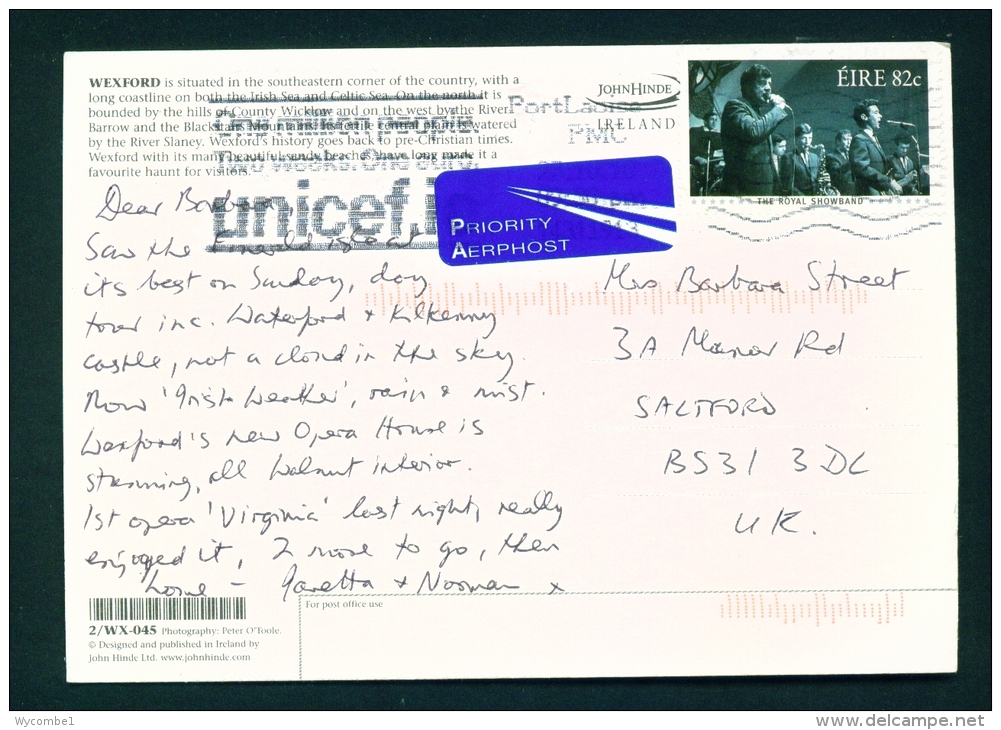 WEXFORD is situated in the southeastern corner of the country, with a
long coastline on both the Irish Sea and Celtic Sea. On the north it is
bounded by the hills of County Wicklow and on the west by the River
Barrow and the Blackstairs Mountains. Its fertile central plain is watered
by the River Slaney. Wexford's history goes back to pre-Christian times.
Wexford with its many beautiful sandy beaches have long made it a
favourite haunt for visitors.
JOHN HINDE
IRELAND
PortLaoise
PMC
ÉIRE 82c
THE ROYAL SHOWBAND
Two weeks. One
unicef.i
PRIORITY
AERPHOST
Dear Barbara
Saw the Emerald isle at
its best on Sunday, day
tour inc. Waterford & Kilkenny
castle, not a cloud in the sky.
Now 'Irish Weather', rain & mist.
Wexford's new Opera House is
stunning, all walnut interior.
1st opera 'Virginia' last night, really
enjoyed it, 2 more to go, then
home - Janetta & Norman x
Mrs Barbara Street
3A Manor Rd
SALTFORD
BS31 3DL
UK.
For post office use
2/WX-045 Photography: Peter O'Toole.
© Designed and published in Ireland by
John Hinde Ltd. www.johnhinde.com
Wycombe1
www.delcampe.net